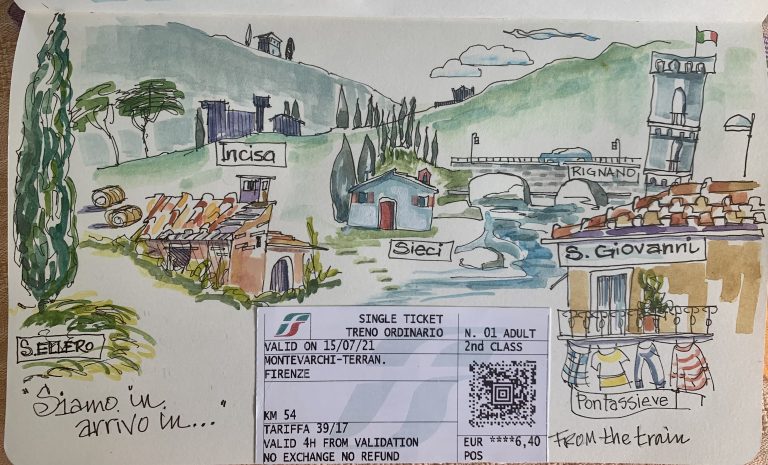 Incisa
RIGNANO
Sieci
S. Giovanni
S. ELLERO
Pontassieve
"Siamo in
arrivo in..."
SINGLE TICKET
TRENO ORDINARIO
N. 01 ADULT
VALID ON 15/07/21
2nd CLASS
MONTEVARCHI-TERRAN.
FIRENZE
KM 54
TARIFFA 39/17
VALID 4H FROM VALIDATION
EUR ****6,40
NO EXCHANGE NO REFUND
POS
FROM the train